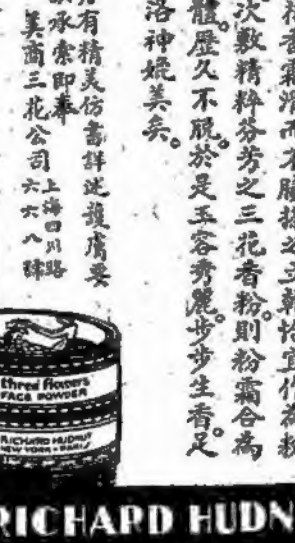 香霜滑而不膩搽之立乾恰宜作為粉
次敷精粹芬芳之三花香粉則粉霜合為
體歷久不脫於是玉容秀麗步步生香足
洛神媲美矣
有精美仿書詳述護膚要
承索即奉
美商三花公司上海四川路六六八號
three flowers
FACE POWDER
RICHARD HUDNUT
NEW YORK - PARIS
RICHARD HUDN